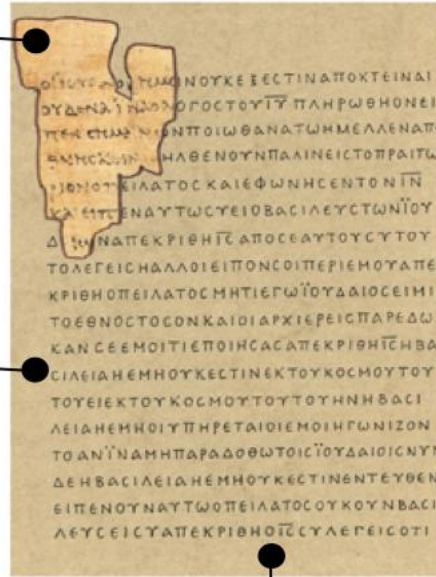 ΟΙΪΟΥΔΑΙΟΙΗΜΕΙΝΟΥΚΕΞΕCΤΙΝΑΠΟΚΤΕΙΝΑΙ
ΟΥΔΕΝΑΪΝΑΟΛΟΓΟCΤΟΥΙ̅Υ̅ΠΛΗΡΩΘΗΟΝΕΙ
ΠΕΝCΗΜΑΙΝΩΝΠΟΙΩΘΑΝΑΤΩΗΜΕΛΛΕΝΑΠ
ΘΝΗCΚΕΙΝ ΗΛΘΕΝΟΥΝΠΑΛΙΝΕΙCΤΟΠΡΑΙΤΩ
ΡΙΟΝΟΠΕΙΛΑΤΟC ΚΑΙΕΦΩΝΗCΕΝΤΟΝΙ̅Ν̅
ΚΑΙΕΙΠΕΝΑΥΤΩCΥΕΙΟΒΑCΙΛΕΥCΤΩΝΪΟΥ
ΔΑΙΩΝΑΠΕΚΡΙΘΗΙ̅C̅ ΑΠΟCΕΑΥΤΟΥCΥΤΟΥ
ΤΟΛΕΓΕΙCΗΑΛΛΟΙΕΙΠΟΝCΟΙΠΕΡΙΕΜΟΥΑΠΕ
ΚΡΙΘΗΟΠΕΙΛΑΤΟC ΜΗΤΙΕΓΩΪΟΥΔΑΙΟCΕΙΜΙ
ΤΟΕΘΝΟCΤΟCΟΝΚΑΙΟΙΑΡΧΙΕΡΕΙCΠΑΡΕΔΩ
ΚΑΝCΕΕΜΟΙΤΙΕΠΟΙΗCΑCΑΠΕΚΡΙΘΗΙ̅C̅ΗΒΑ
CΙΛΕΙΑΗΕΜΗΟΥΚΕCΤΙΝΕΚΤΟΥΚΟCΜΟΥΤΟΥ
ΤΟΥΕΙΕΚΤΟΥΚΟCΜΟΥΤΟΥΤΟΥΗΝΗΒΑCΙ
ΛΕΙΑΗΕΜΗΟΙΥΠΗΡΕΤΑΙΟΙΕΜΟΙΗΓΩΝΙΖΟΝ
ΤΟΑΝΪΝΑΜΗΠΑΡΑΔΟΘΩΤΟΙCΪΟΥΔΑΙΟΙCΝΥΝ
ΔΕΗΒΑCΙΛΕΙΑΗΕΜΗΟΥΚΕCΤΙΝΕΝΤΕΥΘΕΝ
ΕΙΠΕΝΟΥΝΑΥΤΩΟΠΕΙΛΑΤΟCΟΥΚΟΥΝΒΑCΙ
ΛΕΥCΕΙCΥΑΠΕΚΡΙΘΗΟΙ̅C̅CΥΛΕΓΕΙCΟΤΙ